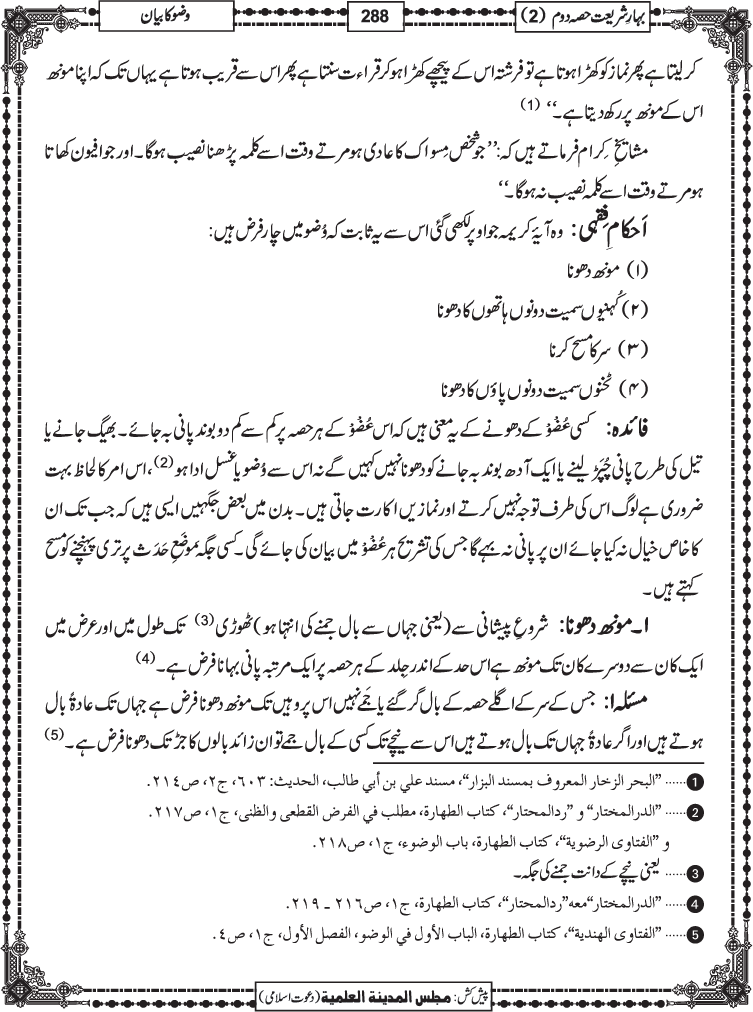 بہارِ شریعت حصہ دوم (2)
288
وضو کا بیان
کر لیتا ہے پھر نماز کو کھڑا ہوتا ہے تو فرشتہ اس کے پیچھے کھڑا ہو کر قراءت سنتا ہے پھر اس سے قریب ہوتا ہے یہاں تک کہ اپنا مونھ
اس کے مونھ پر رکھ دیتا ہے۔‘‘ (1)
مشایخِ کِرام فرماتے ہیں کہ: ’’جو شخص مِسواک کا عادی ہو مرتے وقت اسے کلمہ پڑھنا نصیب ہوگا۔ اور جو افیون کھاتا
ہو مرتے وقت اسے کلمہ نصیب نہ ہوگا۔‘‘
اَحکامِ فِقہی: وہ آیۂ کریمہ جو اوپر لکھی گئی اس سے یہ ثابت کہ وُضو میں چار فرض ہیں:
(۱) مونھ دھونا
(۲) کُہنیوں سمیت دونوں ہاتھوں کا دھونا
(۳) سر کا مسح کرنا
(۴) ٹخنوں سمیت دونوں پاؤں کا دھونا
فائدہ: کسی عُضْوْ کے دھونے کے یہ معنی ہیں کہ اس عُضْوْ کے ہر حصہ پر کم سے کم دو بوند پانی بہ جائے۔ بھیگ جانے یا
تیل کی طرح پانی چُپَڑ لینے یا ایک آدھ بوند بہ جانے کو دھونا نہیں کہیں گے نہ اس سے وُضو یا غسل ادا ہو (2)، اس امر کا لحاظ بہت
ضروری ہے لوگ اس کی طرف توجہ نہیں کرتے اور نمازیں اکارت جاتی ہیں۔ بدن میں بعض جگہیں ایسی ہیں کہ جب تک ان
کا خاص خیال نہ کیا جائے ان پر پانی نہ بہے گا جس کی تشریح ہر عُضْوْ میں بیان کی جائے گی۔ کسی جگہ مَوضَعِ حَدَث پر تری پہنچنے کو مسح
کہتے ہیں۔
۱۔ مونھ دھونا: شروع پیشانی سے (یعنی جہاں سے بال جمنے کی انتہا ہو) ٹھوڑی (3) تک طول میں اور عرض میں
ایک کان سے دوسرے کان تک مونھ ہے اس حد کے اندر جِلد کے ہر حصہ پر ایک مرتبہ پانی بہانا فرض ہے۔ (4)
مسئلہ ۱: جس کے سر کے اگلے حصہ کے بال گر گئے یا جَمے نہیں اس پر وہیں تک مونھ دھونا فرض ہے جہاں تک عادۃً بال
ہوتے ہیں اور اگر عادۃً جہاں تک بال ہوتے ہیں اس سے نیچے تک کسی کے بال جمے تو ان زائد بالوں کا جڑ تک دھونا فرض ہے۔ (5)
1 ...... ”البحر الزخار المعروف بمسند البزار“، مسند علي بن أبي طالب، الحديث: ٦٠٣، ج٢، ص٢١٤.
2 ...... ”الدرالمختار“ و ”ردالمحتار“، كتاب الطهارة، مطلب في الفرض القطعي والظني، ج١، ص٢١٧.
و ”الفتاوى الرضوية“، كتاب الطهارة، باب الوضوء، ج١، ص٢١٨.
3 ...... یعنی نیچے کے دانت جمنے کی جگہ۔
4 ...... ”الدرالمختار“ معه ”ردالمحتار“، كتاب الطهارة، ج١، ص٢١٦ ـ ٢١٩.
5 ...... ”الفتاوى الهندية“، كتاب الطهارة، الباب الأول في الوضو، الفصل الأول، ج١، ص٤.
پیش کش: مجلس المدینة العلمیة (دعوت اسلامی)